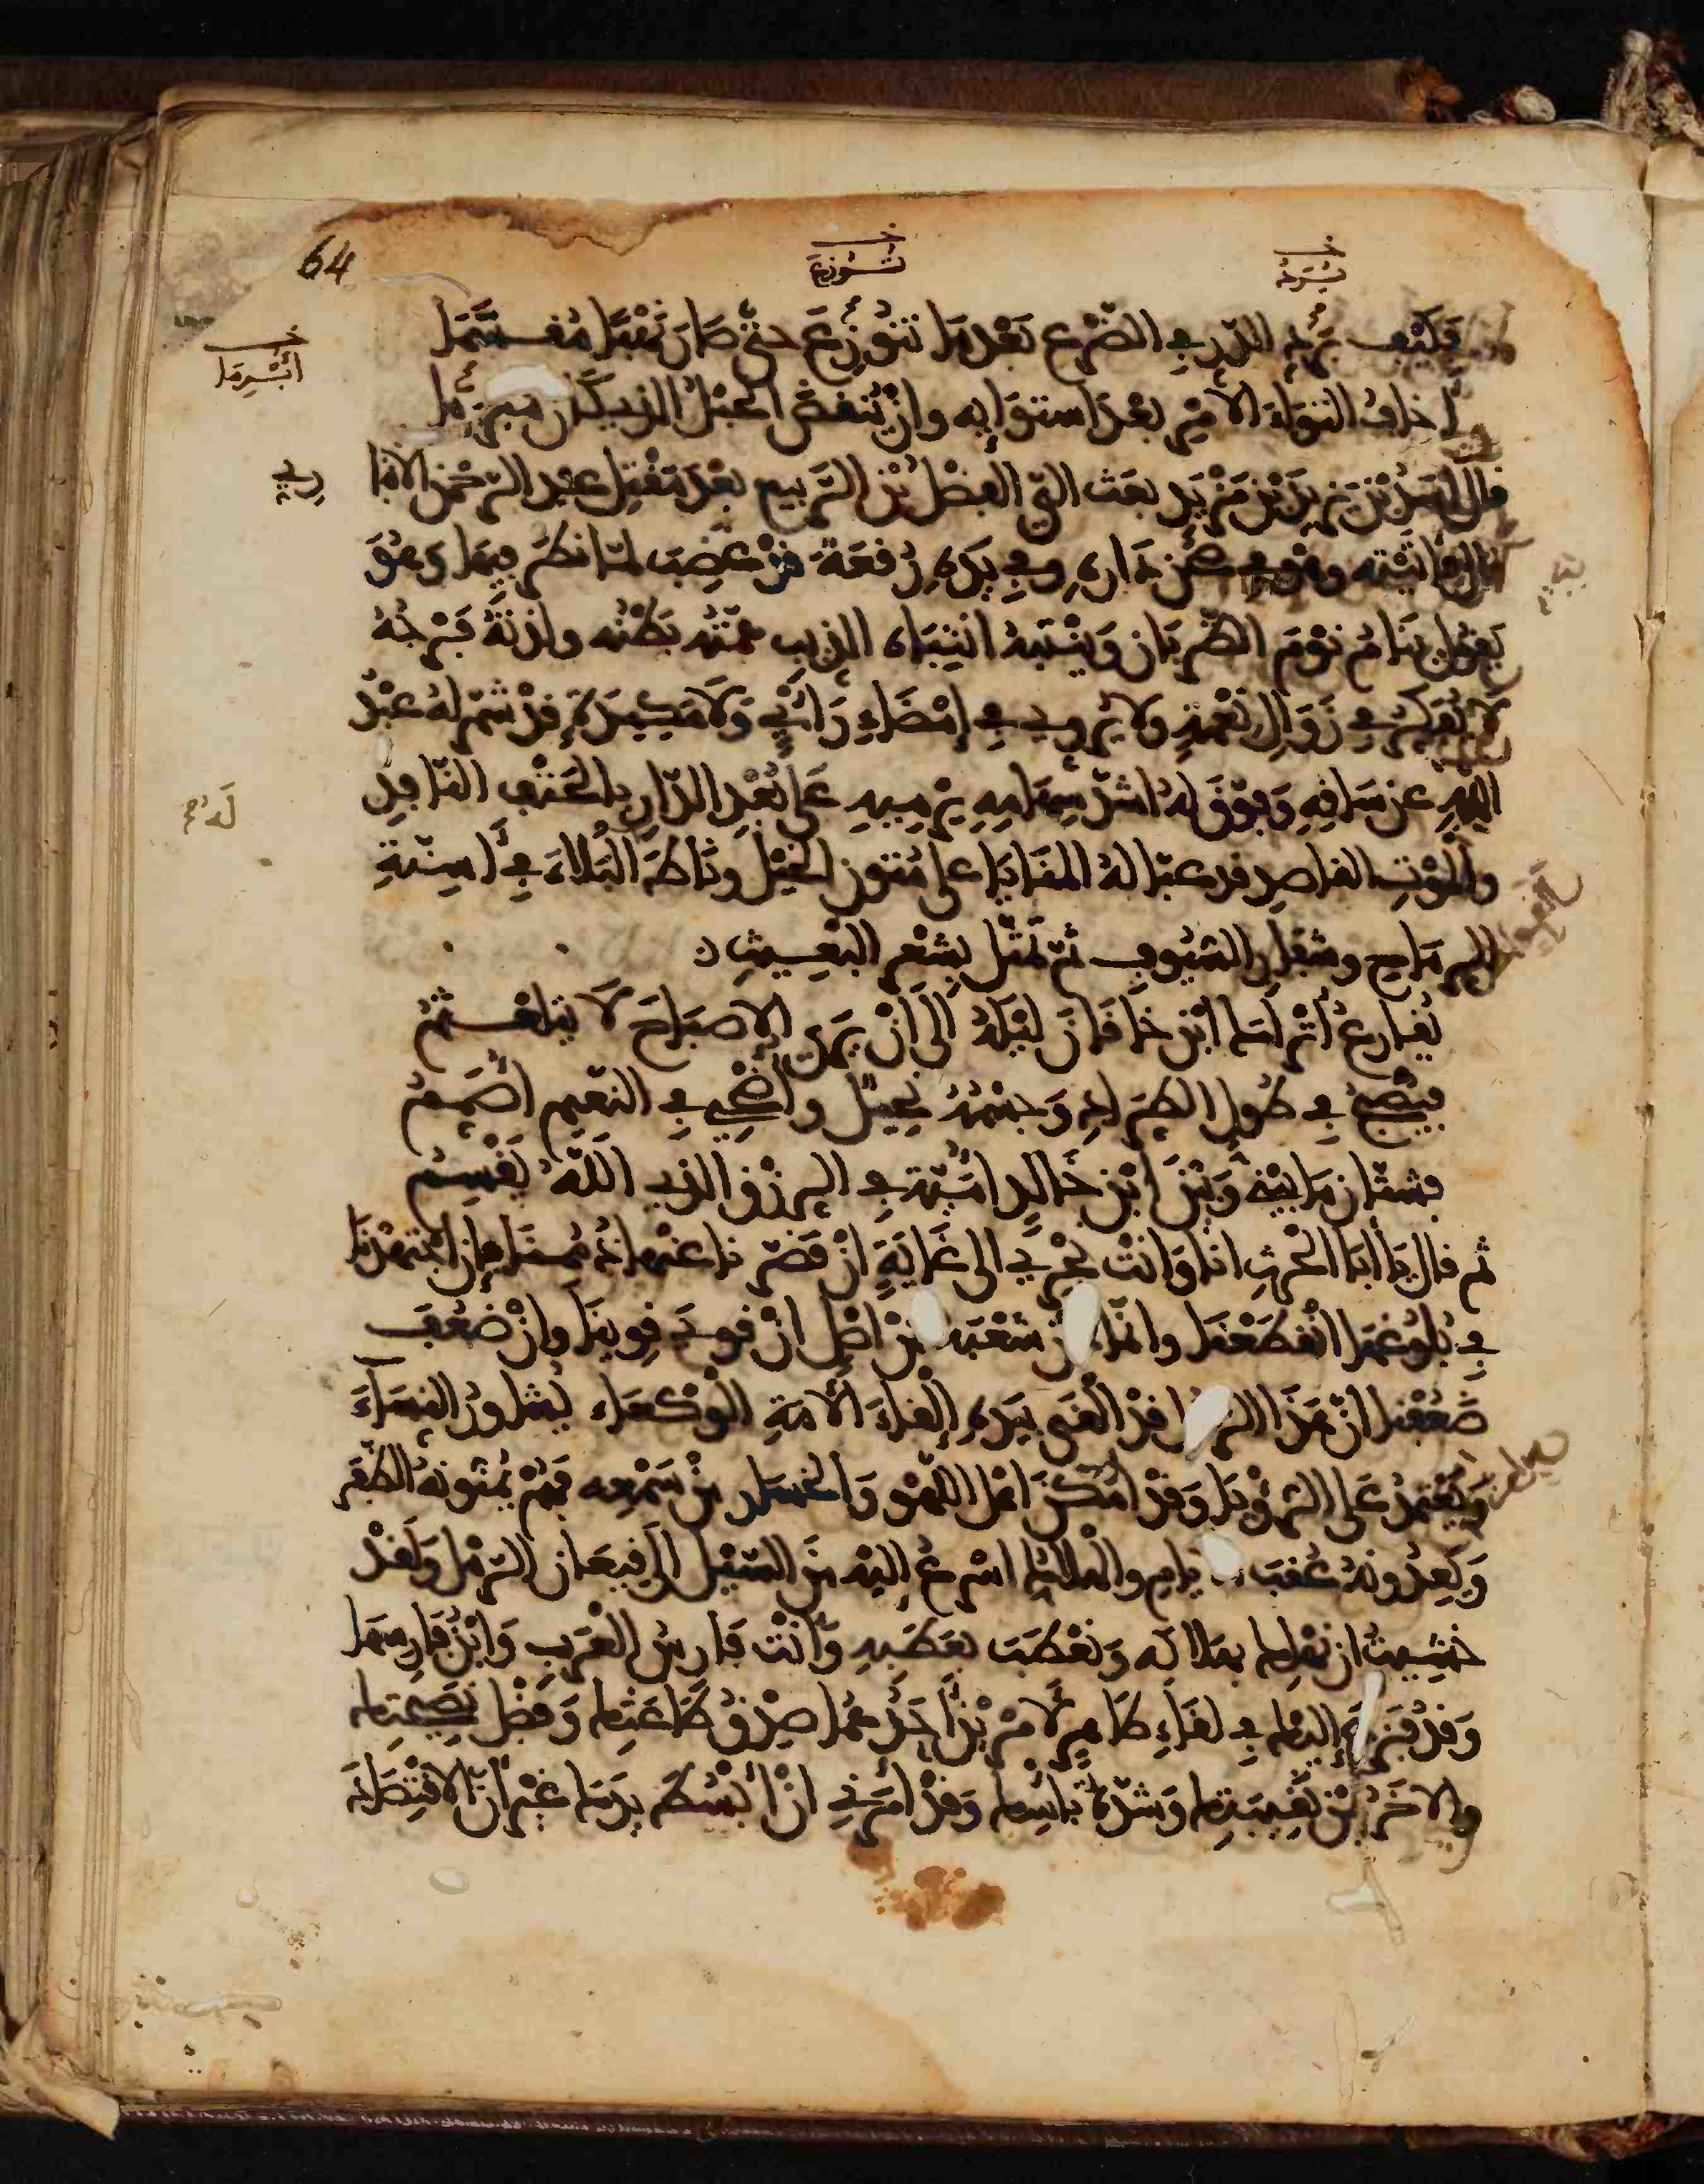 64
خ
يُرَدُّ
خ
تُوُزِّعَ
فَكَيْفَ يَرُدُّ الدَّرَّ فِي الضَّرْعِ بَعْدَمَا تَوَزَّعَ حَتَّى صَارَ نَهْبًا مُقَسَّمَا
خ
أُبْرِمَا
أخافُ التِوَاءَ الأَمْرِ بَعْدَ اسْتِوَائِهِ وانْ يُنْقَضَ الحَبْلُ الذي كان مُبْرَمَا
قال أَسَدُ بْنُ يَزِيدَ بْنِ مَزْيَدٍ بَعَثَ اليَّ الفَضْلُ بْنُ الرَّبِيعِ بَعْدَ مَقْتَلِ عبد الرَّحْمٰنِ الأَنْبا
رِيِّ
قال فأتَيْتُه وهُوَ في صَحْنِ دَارِهِ وفي يَدِهِ رُقْعَةٌ قَدْ غَضِبَ لمَّا نَظَرَ فِيهَا وَهُوَ
يَقُولُ يَنَامُ نَوْمَ الظَّرِبَانِ وَيَنْتَبِهُ انْتِبَاهَ الذِيبِ هَمُّهُ بَطْنُه ولَذَّتُهُ فَرْجُهُ
لَا يُفَكِّرُ في زَوَالِ نِعْمَةٍ ولا يُرَوِّي فِي إِمْضَاءِ رَأْيٍ وَلا مَكِيدَةٍ قَدْ شَمَّرَ لَهُ عَبْدُ
اللَّهِ عن سَاقِهِ وَفَوَّقَ لَهُ أشَدَّ سِهَامِهِ يَرْمِيهِ عَلَى بُعْدِ الدَّارِ بِالحَتْفِ النَّافِذِ
وَالْمَوْتِ القاصِدِ قد عبَّا لَهُ المَنَايَا على مُتُونِ الخَيْلِ ونَاطَ لَهُ البَلاءَ فِي أَسِنَّةِ
الرِّمَاحِ وشِفَارِ السُّيُوفِ ثُمَّ تَمَثَّلَ بِشِعْرِ البَعِيثِ :
يُقَارِعُ أَتْرَاكَ ابْنِ خَاقَانَ لَيْلَهُ إِلَى أَنْ يَرَى الإصْبَاحَ لَا يَتَلَعْثَمُ
فَيُصْبِحُ فِي طُولِ الطِّرَادِ وَجِسْمُهُ نَحِيلٌ وأُضْحِي فِي النَّعِيمِ أُصَمِّمُ
فشَتَّانَ مَا بَيْنِي وَبَيْنَ ابْنِ خَالِدٍ أُمَيَّةَ فِي الرِّزْقِ الذي اللَّهُ يَقْسِمُ
ثم قال يَا أَبَا الحَرْثِ انَا وَانْتَ نَجْرِي الى غَايَةٍ انْ قَصَّرْنا عنها ذُمِمْنَا وان اجْتَهَدْنَا
فِي بُلُوغِهَا انْقَطَعْنَا وانَّمَا نَحْنُ شُعْبَةٌ مِنْ اصْلٍ انْ قَوِيَ قَوِينَا وانْ ضَعُفَ
ضَعُفْنَا انَّ هَذَا الرَّجُلَ قَدْ أَلْقَى بِيَدِهِ إِلْقَاءَ الأَمَةِ الوَكْعَاءِ يُشَاوِرُ النِسَاءَ
وَيَعْتَمِدُ عَلَى الرُّؤْيَا وَقَدْ أَمْكَنَ اهْلَ اللَّهْوِ وَالْخَسَارِ مِنْ سَمْعِه فَهُمْ يُمَنُّونَهُ الظَّفَرَ
وَيَعِدُونَهُ عُقَبَ الايامِ والهَلاكُ اسْرَعُ إليْهِ مِنَ السَّيْلِ إلى قِيعَانِ الرَّمْلِ وَلَقَدْ
خَشِيتُ انْ نَهْلِكَ بِهَلاكِه وَنَعْطَبَ بِعَطَبِهِ وَأَنْتَ فَارِسُ العَرَبِ وَابْنُ فَارِسِهَا
وَقَدْ فُزِعَ إِلَيْكَ فِي لِقَاءِ طَاهِرٍ لأَمْرَيْنِ أَحَدُهُمَا صِدْقُ طَاعَتِكَ وَفَضْلُ نَصِيحَتِكَ
والآخَرُ يُمْنُ نَقِيبَتِكَ وَشِدَّةُ بَأْسِكَ وَقَدْ أَمَرَنِي انْ أَبْسُطَ يَدَكَ غَيْرَ أَنَّ الاقْتِصَادَ